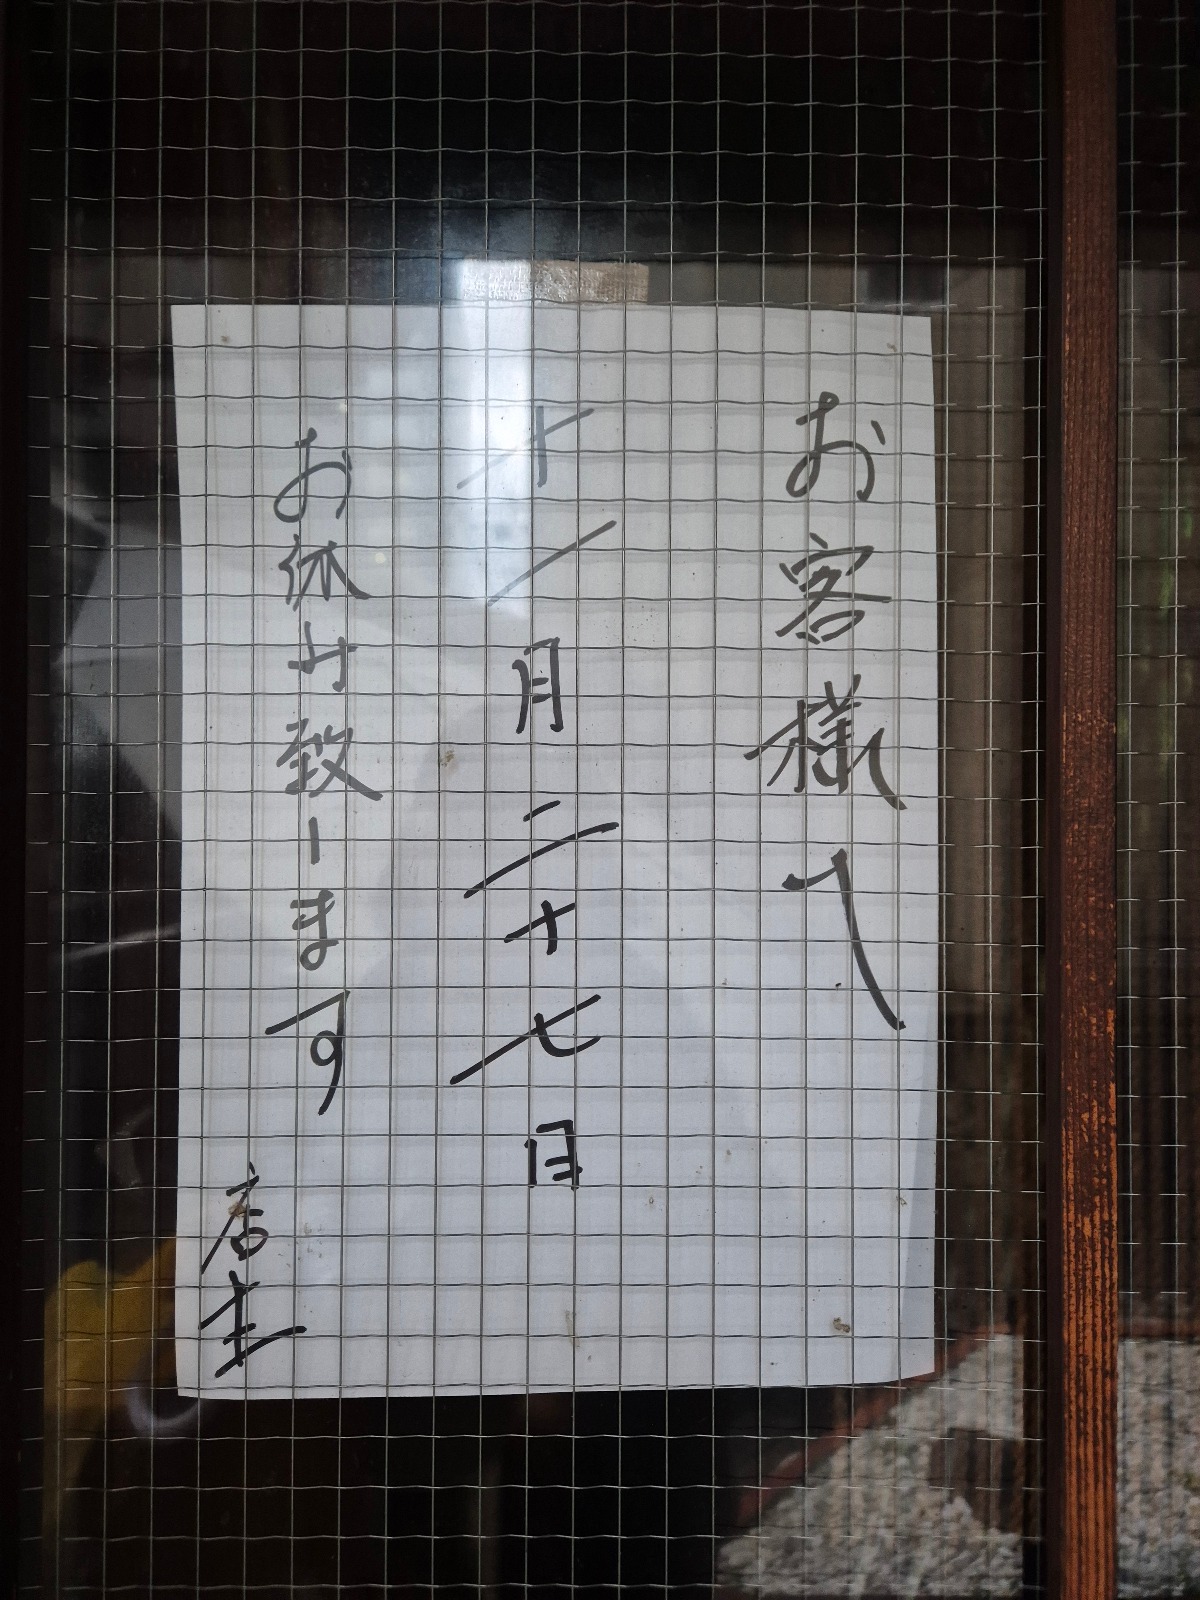 お客様へ
十一月二十七日
お休み致します
店主